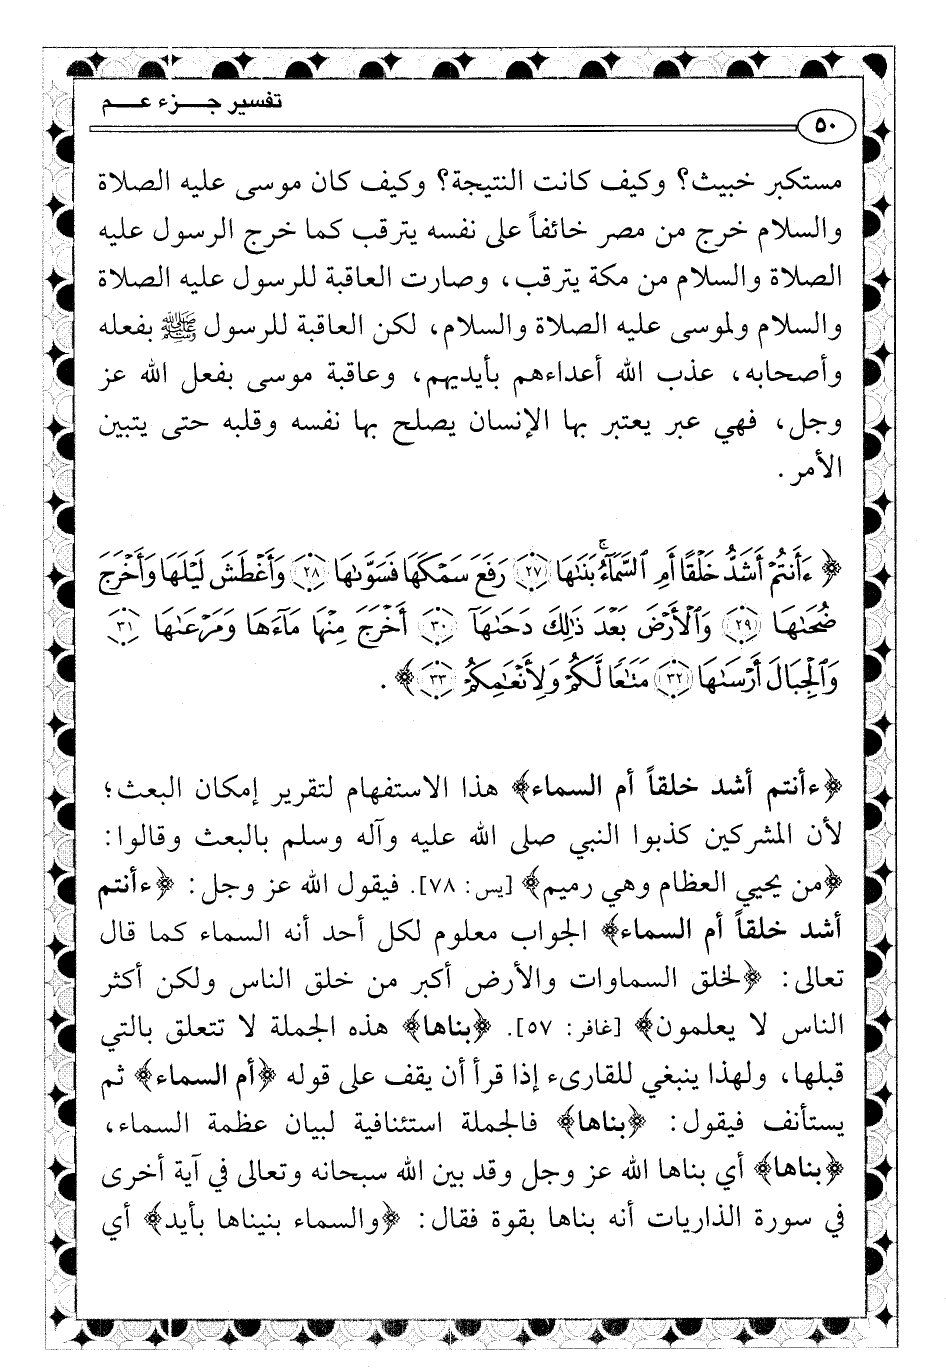 تفسير جزء عم
٥٠
مستكبر خبيث؟ وكيف كانت النتيجة؟ وكيف كان موسى عليه الصلاة
والسلام خرج من مصر خائفاً على نفسه يترقب كما خرج الرسول عليه
الصلاة والسلام من مكة يترقب، وصارت العاقبة للرسول عليه الصلاة
والسلام ولموسى عليه الصلاة والسلام، لكن العاقبة للرسول ﷺ بفعله
وأصحابه، عذب الله أعداءهم بأيديهم، وعاقبة موسى بفعل الله عز
وجل، فهي عبر يعتبر بها الإنسان يصلح بها نفسه وقلبه حتى يتبين
الأمر.
﴿ءَأَنتُمْ أَشَدُّ خَلْقًا أَمِ ٱلسَّمَآءُ ۚ بَنَىٰهَا ٢٧ رَفَعَ سَمْكَهَا فَسَوَّىٰهَا ٢٨ وَأَغْطَشَ لَيْلَهَا وَأَخْرَجَ
ضُحَىٰهَا ٢٩ وَٱلْأَرْضَ بَعْدَ ذَٰلِكَ دَحَىٰهَآ ٣٠ أَخْرَجَ مِنْهَا مَآءَهَا وَمَرْعَىٰهَا ٣١
وَٱلْجِبَالَ أَرْسَىٰهَا ٣٢ مَتَٰعًا لَّكُمْ وَلِأَنْعَٰمِكُمْ ٣٣﴾.
﴿ءأنتم أشد خلقاً أم السماء﴾ هذا الاستفهام لتقرير إمكان البعث؛
لأن المشركين كذبوا النبي صلى الله عليه وآله وسلم بالبعث وقالوا:
﴿من يحيي العظام وهي رميم﴾ [يس: ٧٨]. فيقول الله عز وجل: ﴿ءأنتم
أشد خلقاً أم السماء﴾ الجواب معلوم لكل أحد أنه السماء كما قال
تعالى: ﴿لخلق السماوات والأرض أكبر من خلق الناس ولكن أكثر
الناس لا يعلمون﴾ [غافر: ٥٧]. ﴿بناها﴾ هذه الجملة لا تتعلق بالتي
قبلها، ولهذا ينبغي للقارىء إذا قرأ أن يقف على قوله ﴿أم السماء﴾ ثم
يستأنف فيقول: ﴿بناها﴾ فالجملة استئنافية لبيان عظمة السماء،
﴿بناها﴾ أي بناها الله عز وجل وقد بين الله سبحانه وتعالى في آية أخرى
في سورة الذاريات أنه بناها بقوة فقال: ﴿والسماء بنيناها بأيد﴾ أي